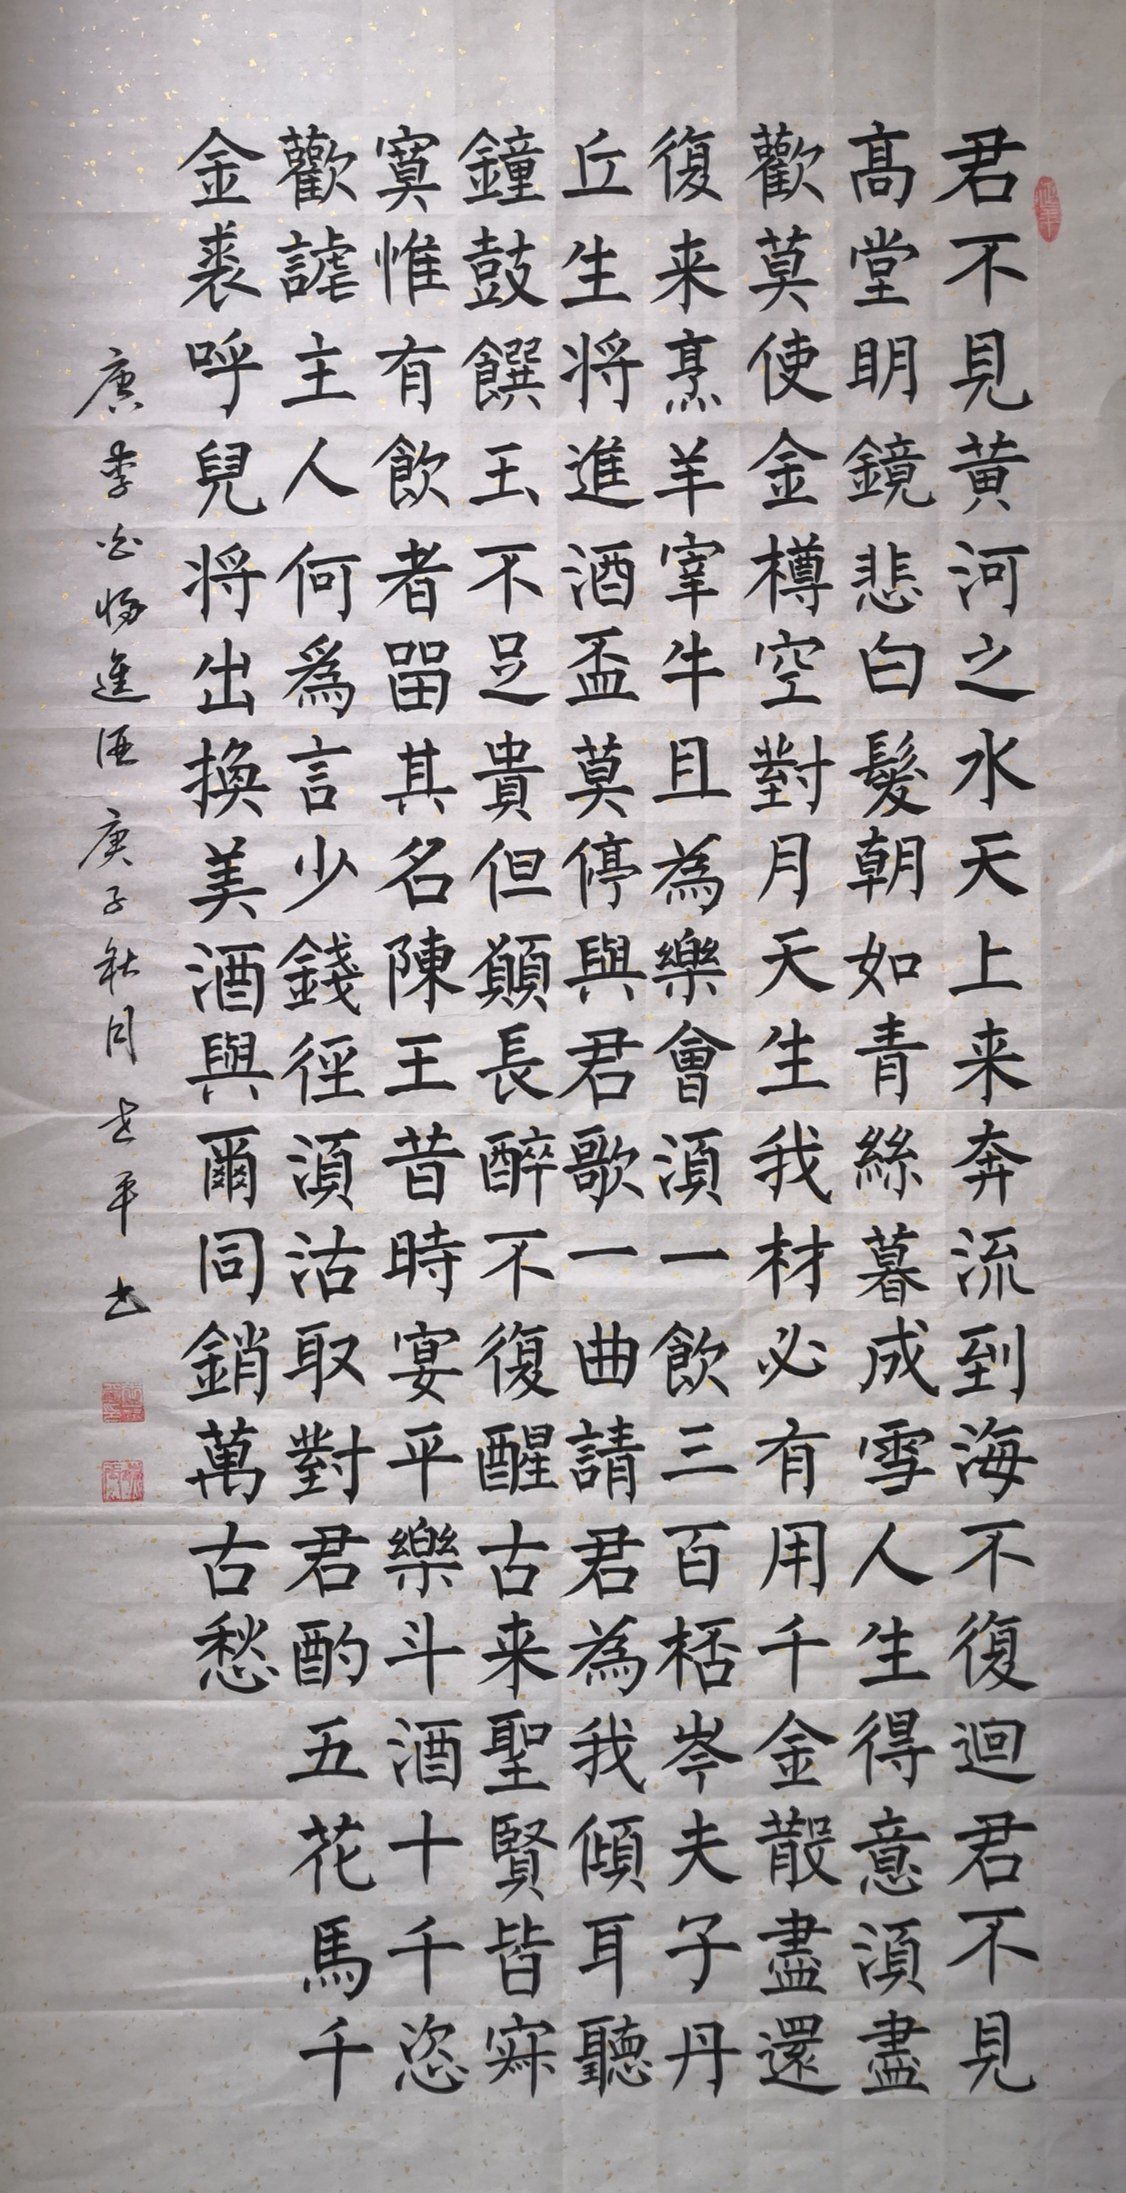 君不見黃河之水天上来奔流到海不復迴君不見
髙堂明鏡悲白髮朝如青絲暮成雪人生得意湏盡
歡莫使金樽空對月天生我材必有用千金散盡還
復来烹羊宰牛且為樂會湏一飲三百桮岑夫子丹
丘生将進酒盃莫停與君歌一曲請君為我傾耳聽
鐘鼓饌玉不足貴但願長醉不復醒古来聖賢皆寂
寞惟有飲者畱其名陳王昔時宴平樂斗酒十千恣
歡謔主人何爲言少錢徑湏沽取對君酌五花馬千
金裘呼兒将出換美酒與爾同銷萬古愁
唐李白将進酒庚子秋月志平书